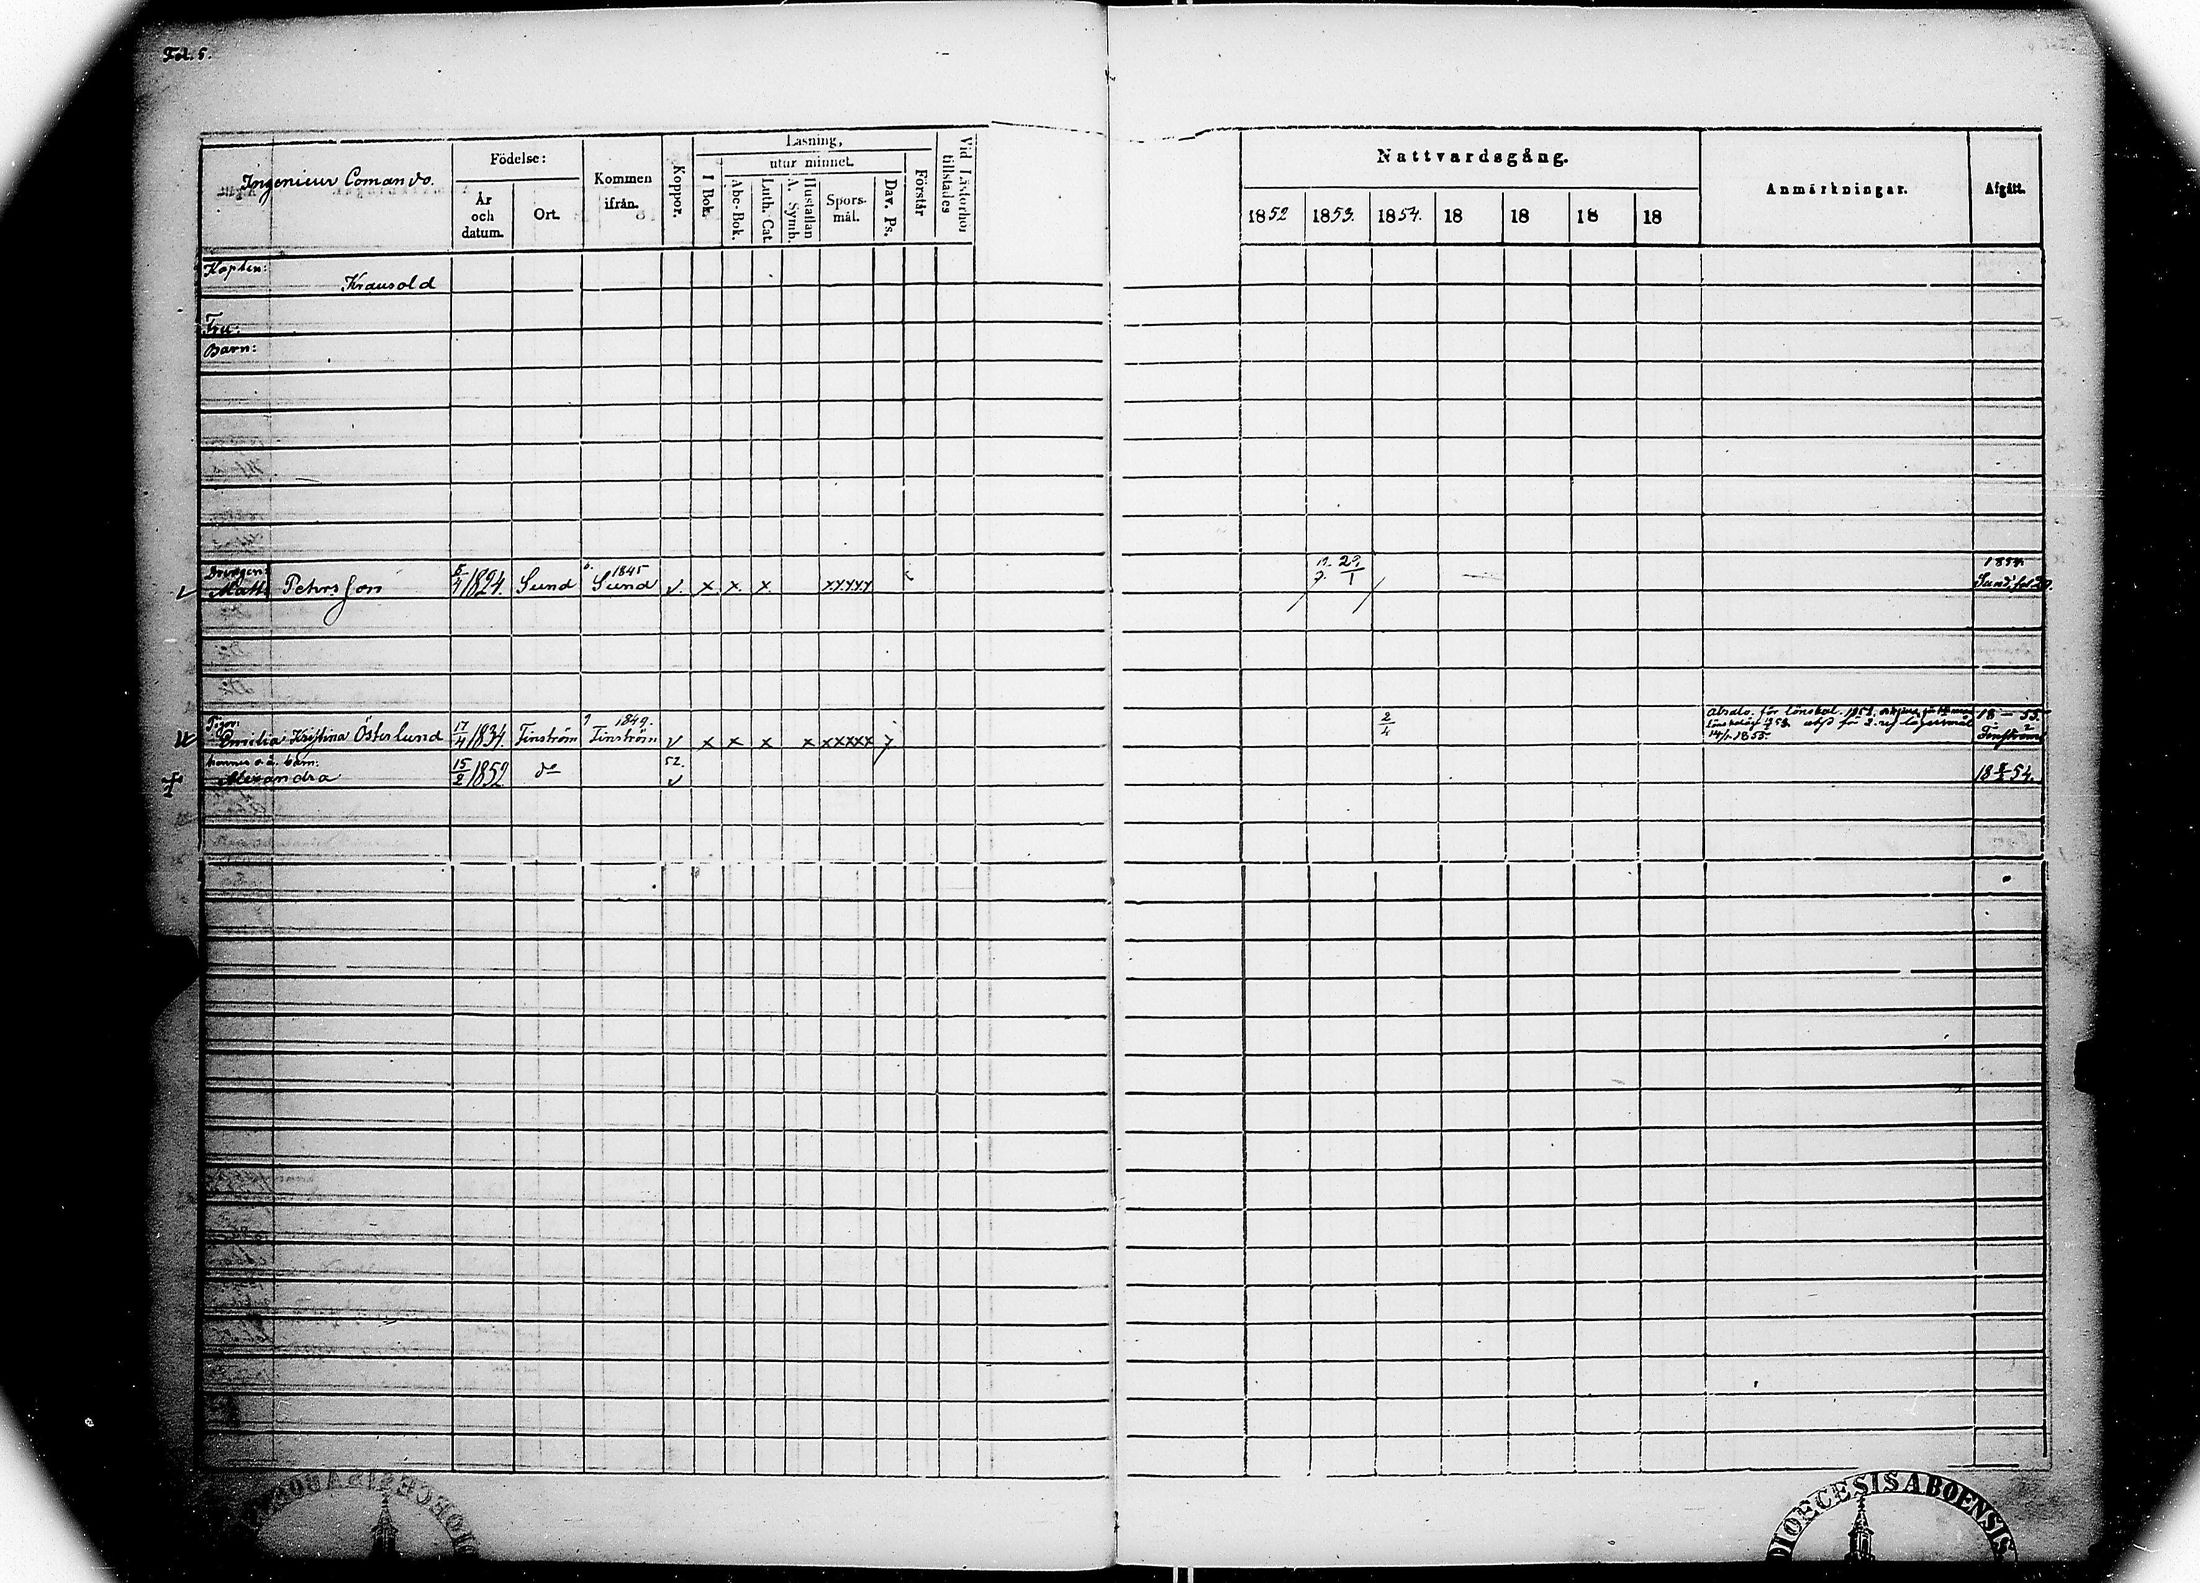 Fol. 5.
Ingenieur Comando.
Födelse:
År och datum.
Ort.
Kommen ifrån.
Koppor.
Läsning,
utur minnet.
I Bok.
Abc-Bok.
Luth. Cat.
Hustaflan A. Symb.
Spors-mål.
Dav. Ps.
Förstår
Vid Läsförhör tillstädes
Nattvardsgång.
1852 1853. 1854. 18 18 18 18
Anmärkningar.
Afgått.
Kapten:
Krausold
Fru:
Barn:
Drängen:
Matts Petersson 5/4 1824. Sund 1845 Sund v. x x. x. xxxxx 29/1 1854. Sund, fol.
Pigor:
Emilia Kristina Österlund 17/4 1834. Finström 1849. Finström v x x x x xxxxx 2/4
Absolv. för lönskal. 1852.
14/1 1855.
18 – 55. Finström
hennes o. ä. barn:
Alexandra 15/2 1852. do 52. v 18 54.
DIOECESIS ABOENSIS